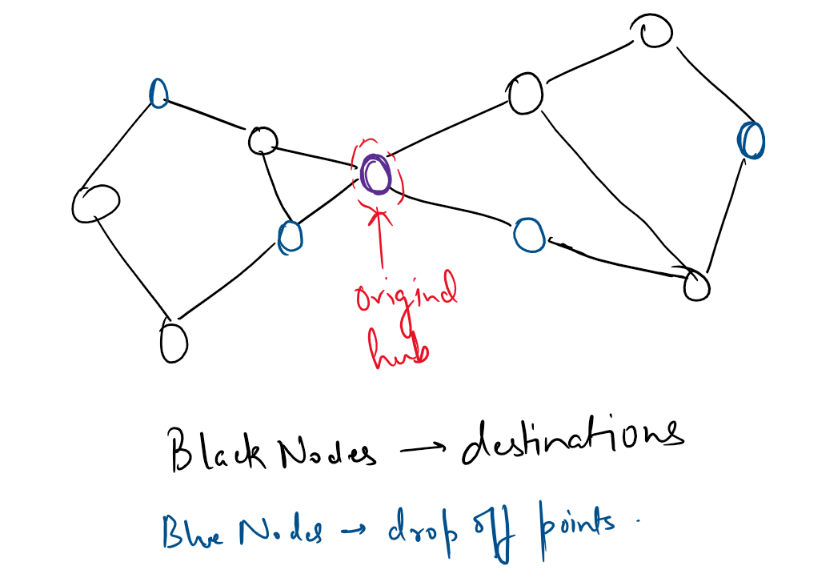 origind
hub
Black Nodes → destinations
Blue Nodes → drop off points.